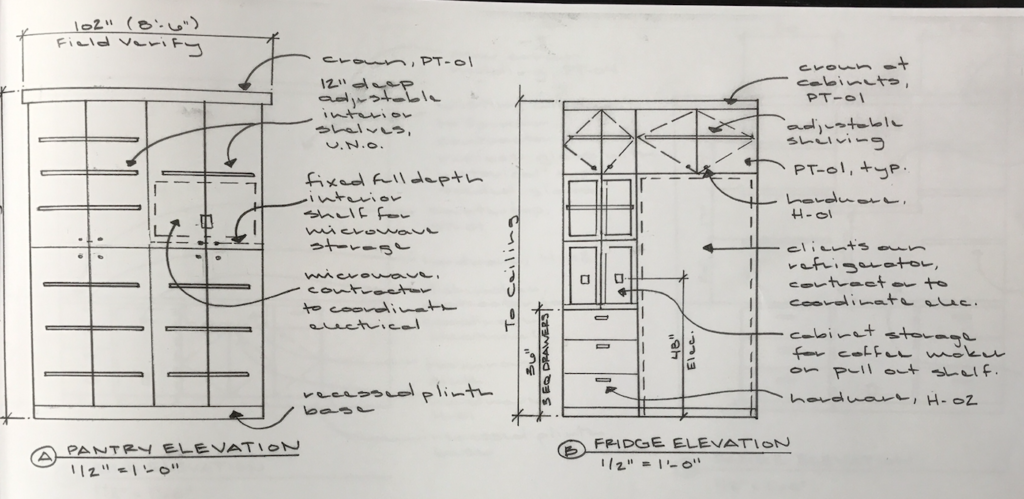 102" (8'-6")
Field Verify
crown, PT-01
12" deep
adjustable
interior
shelves,
U.N.O.
fixed full depth
interior
shelf for
microwave
storage
microwave.
contractor
to coordinate
electrical
recessed plinth
base
A PANTRY ELEVATION
1/2" = 1'-0"
To Ceiling
36"
3 EQ DRAWERS
48"
Elec.
crown at
cabinets,
PT-01
adjustable
shelving
PT-01, typ.
hardware,
H-01
clients own
refrigerator,
contractor to
coordinate elec.
cabinet storage
for coffee maker
on pull out shelf.
hardware, H-02
B FRIDGE ELEVATION
1/2" = 1'-0"